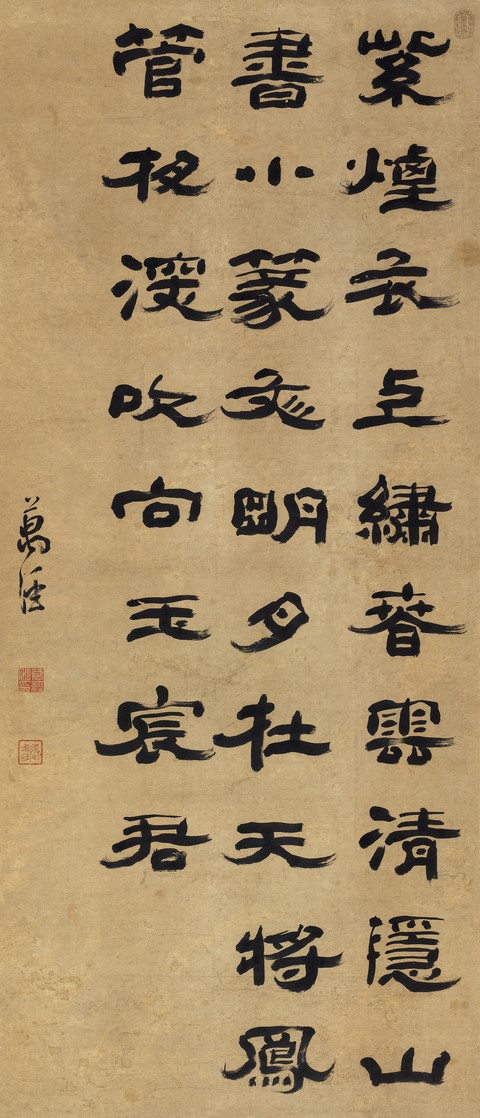 紫煙衣上繡春雲清隱山
書小篆文明月在天將鳳
管夜深吹向玉宸君
萬經